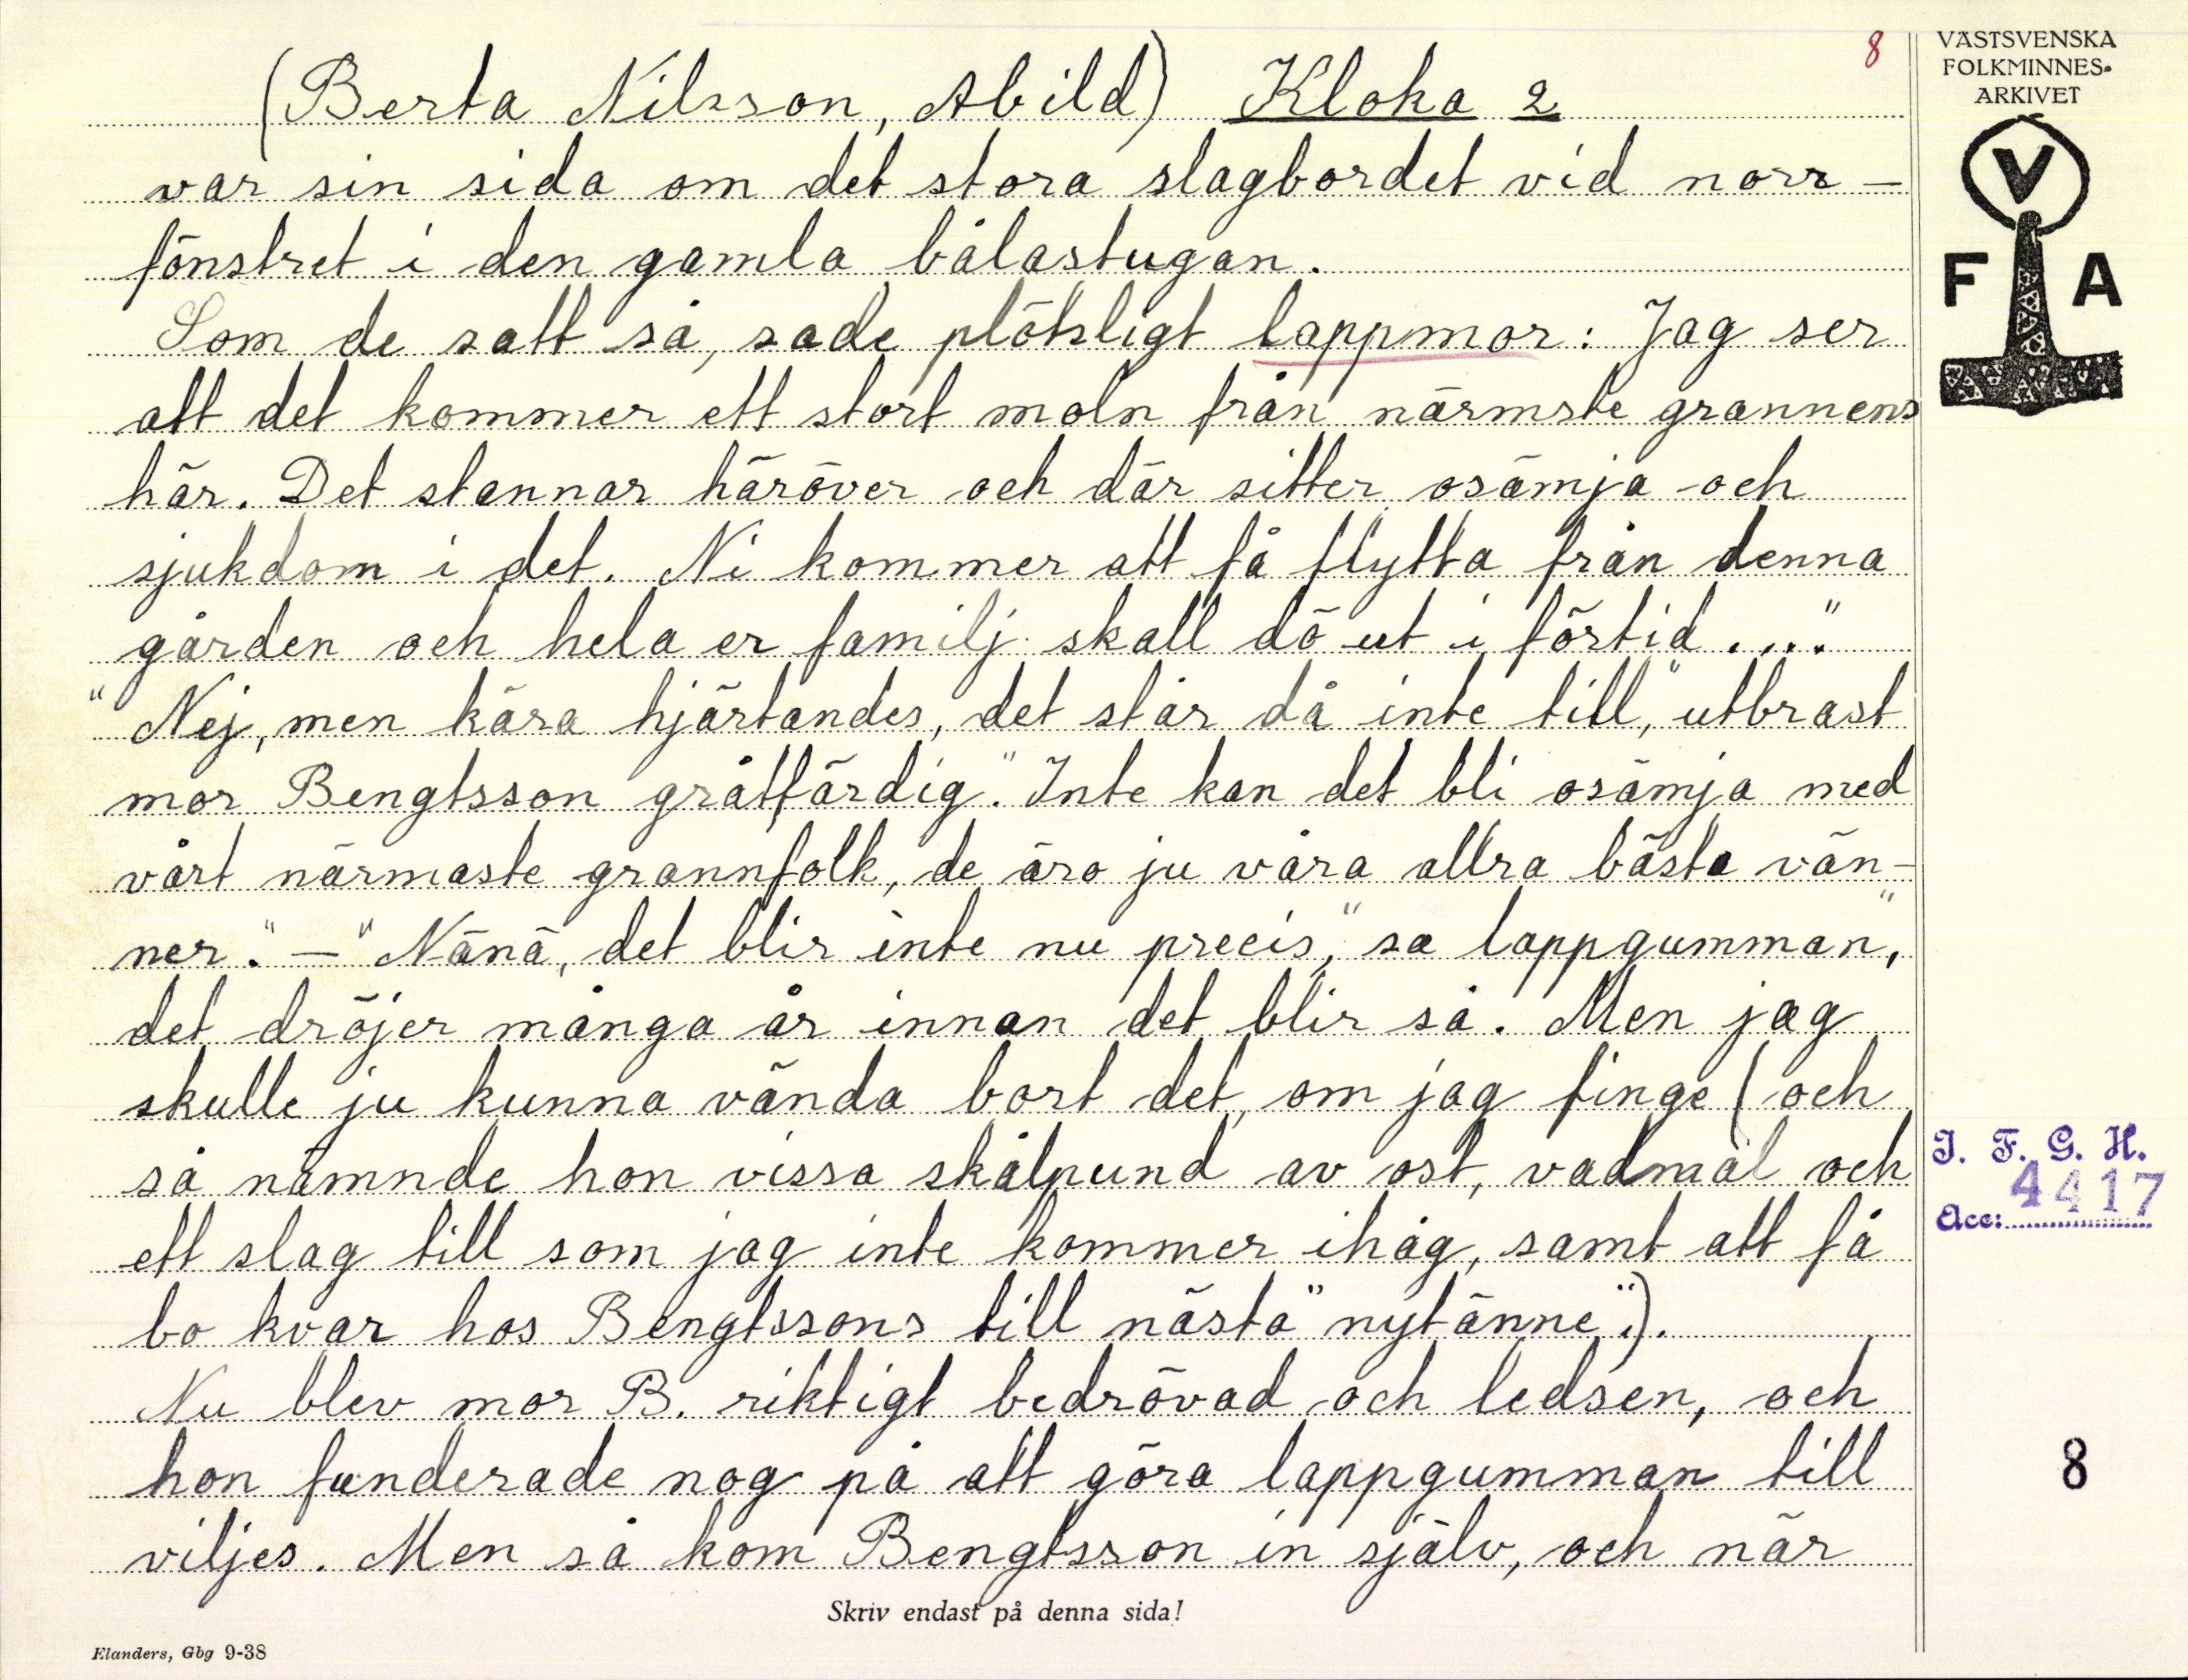 8
(Berta Nilsson, Abild) Kloka 2
var sin sida om det stora slagbordet vid norr-
fönstret i den gamla bålastugan.
Som de satt så, sade plötsligt lappmor: Jag ser
att det kommer ett stort moln från närmste grannens
här. Det stannar häröver och där sitter osämja och
sjukdom i det. Ni kommer att få flytta från denna
gården och hela er familj skall dö ut i förtid...."
"Nej, men kära hjärtandes, det står då inte till," utbrast
mor Bengtsson gråtfärdig. "Inte kan det bli osämja med
vårt närmaste grannfolk, de äro ju våra allra bästa vän-
ner." - "Nänä, det blir inte nu precis," sa lappgumman, "
det dröjer många år innan det blir så. Men jag
skulle ju kunna vända bort det, om jag finge (och
så nämnde hon vissa skålpund av ost, vadmal och
ett slag till som jag inte kommer ihåg, samt att få
bo kvar hos Bengtssons till nästa "nytänne".).
Nu blev mor B. riktigt bedrövad och ledsen, och
hon funderade nog på att göra lappgumman till
viljes. Men så kom Bengtsson in själv, och när
Skriv endast på denna sida!
Elanders, Gbg 9-38
VÄSTSVENSKA
FOLKMINNES-
ARKIVET
V
F A
I. F. G. H.
Acc: 4417
8